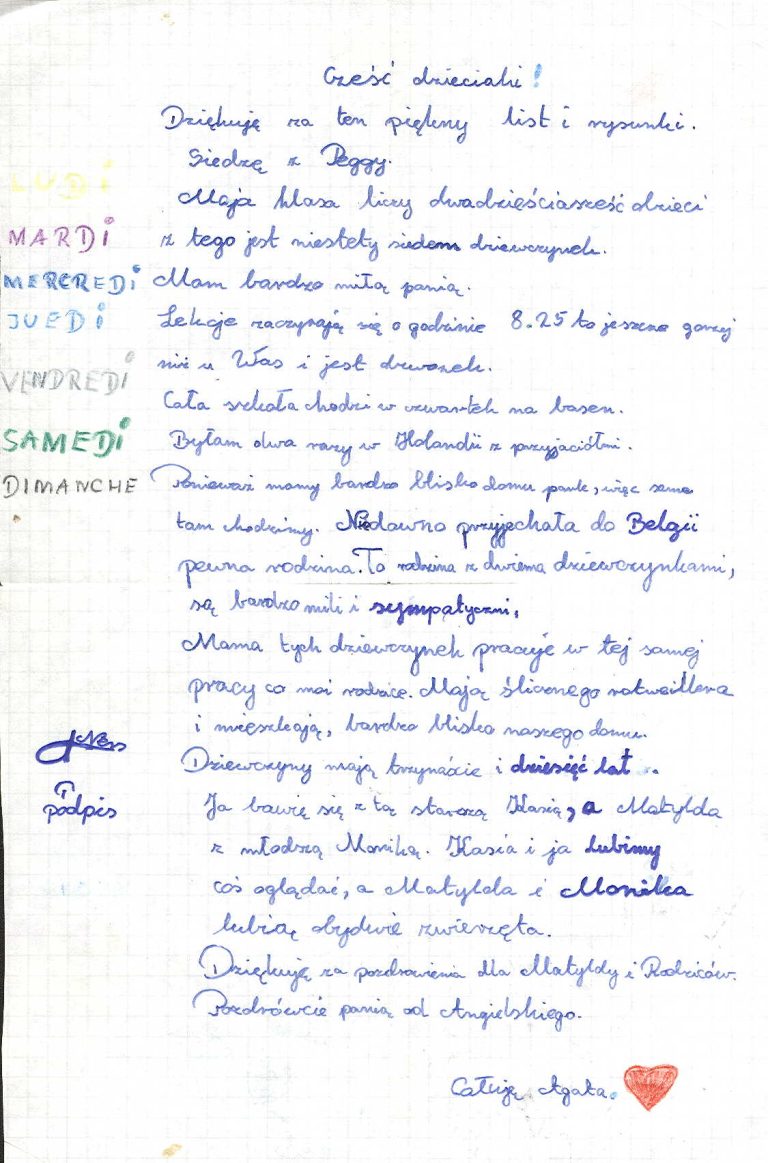 Cześć dzieciaki!
Dziękuję za ten piękny list i rysunki.
Siedzę z Peggy.
Moja klasa liczy dwadzięściasześć dzieci
z tego jest niestety siedem dziewczynek.
Mam bardzo miłą panią.
Lekcje zaczynają się o godzinie 8.25 to jeszcze gorzej
niż u Was i jest dzwonek.
Cała szkoła chodzi w czwartek na basen.
Byłam dwa razy w Holandii z przyjaciółmi.
Ponieważ mamy bardzo blisko domu park, więc same
tam chodzimy. Niedawno przyjechała do Belgii
pewna rodzina. To rodzina z dwiema dziewczynkami,
są bardzo mili i sympatyczni,
Mama tych dziewczynek pracuje w tej samej
pracy co moi rodzice. Mają ślicznego rotweillera
i mieszkają, bardzo blisko naszego domu.
Dziewczyny mają trzynaście i dziesięć lat.
Ja bawię się z tą starszą Kasią, a Matylda
z młodszą Moniką. Kasia i ja lubimy
coś oglądać, a Matylda i Monika
lubią obydwie zwierzęta.
Dziękuję za pozdrowienia dla Matyldy i Rodziców.
Pozdrówcie panią od Angielskiego.
Całuję Agata.
LUDI
MARDI
MERCREDI
JUEDI
VENDREDI
SAMEDI
DIMANCHE
podpis